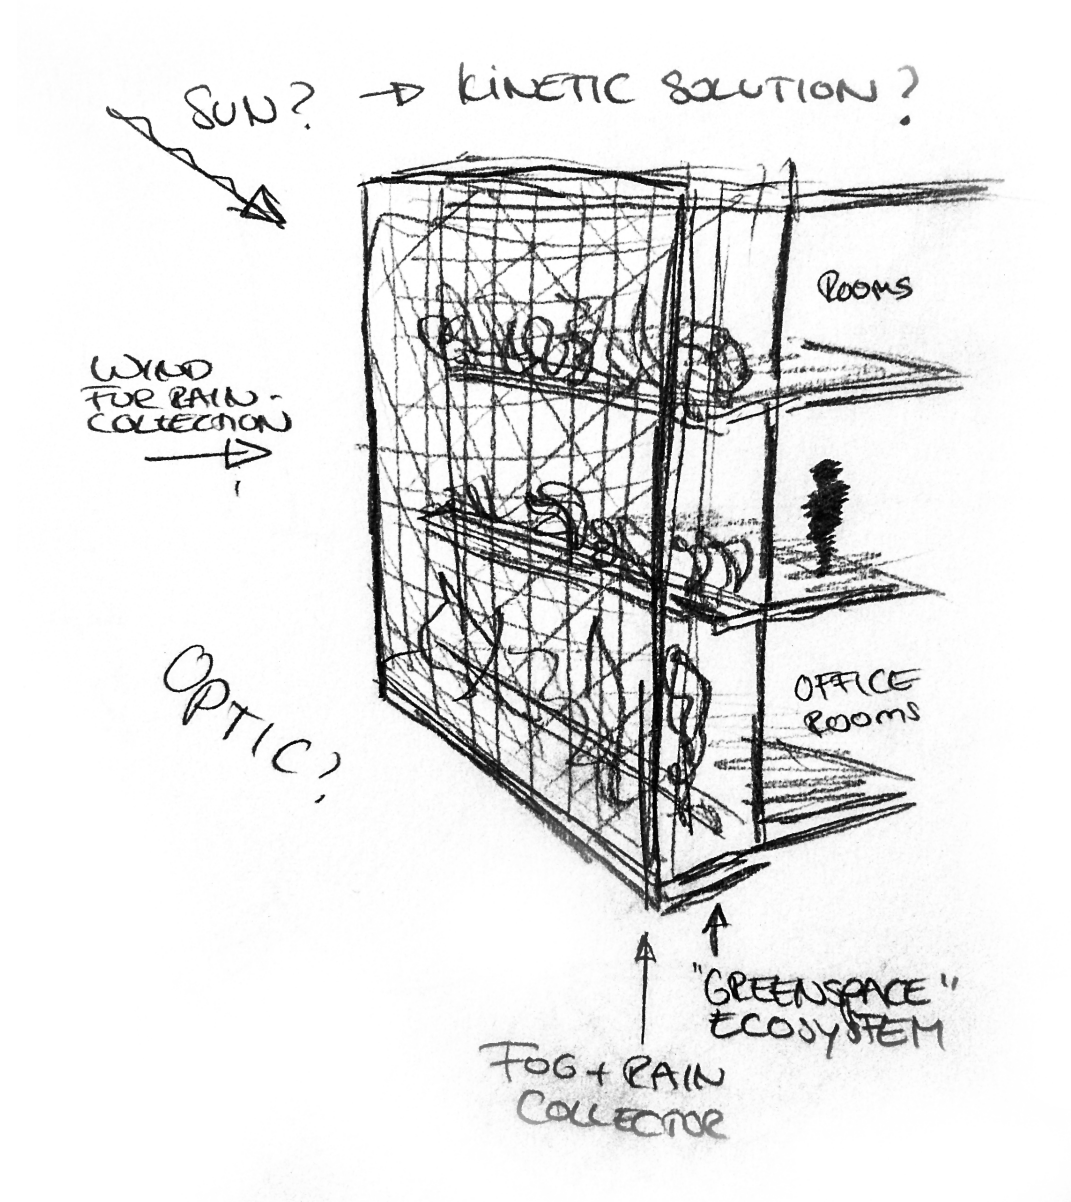 SUN? → KINETIC SOLUTION?
ROOMS
WIND
FOR RAIN-
COLLECTION
OPTIC?
OFFICE
ROOMS
"GREENSPACE"
ECOSYSTEM
FOG + RAIN
COLLECTOR